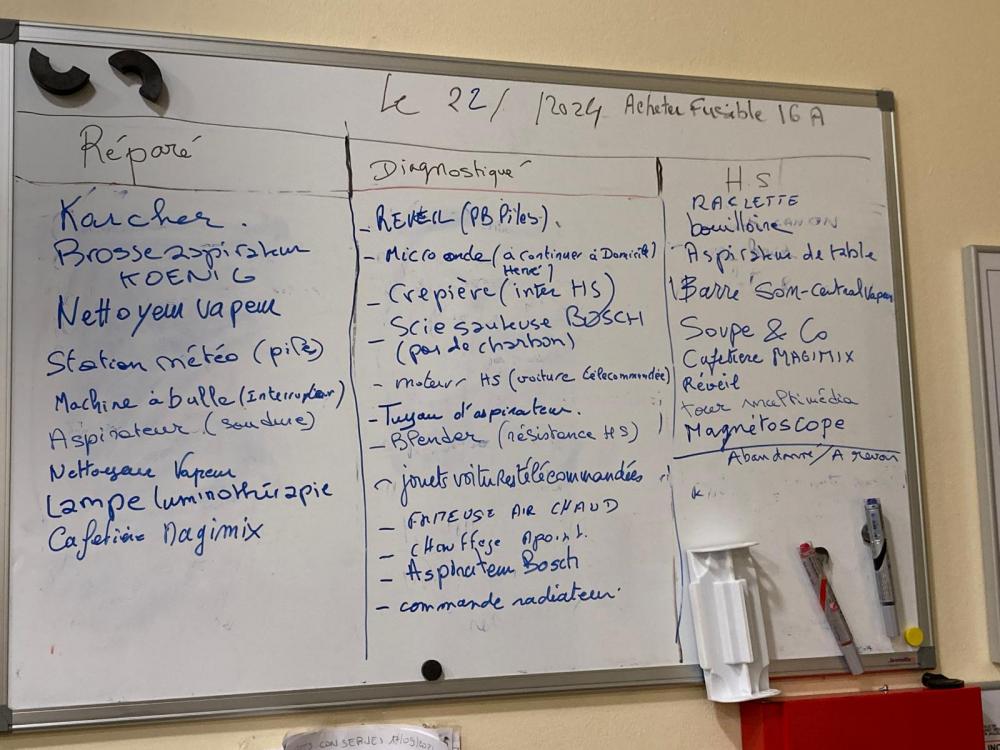 Le 22/ /2024 Acheter Fusible 16 A
Réparé
Karcher.
Brosse aspirateur
KOENIG
Nettoyeur vapeur
Station météo (pile)
Machine à bulle (Interrupteur)
Aspirateur (soudure)
Nettoyeur Vapeur
Lampe luminothérapie
Cafetière Magimix
Diagnostiqué
- REVEIL (PB Piles).
- Micro onde (à continuer à Domicile
Hervé)
- Crepière (inter HS)
- Scie sauteuse BOSCH
(pas de charbon)
- moteur HS (voiture télécommandée)
- Tuyau d'aspirateur.
- Blender (résistance HS)
- jouets voitures télécommandées
- FRITEUSE AIR CHAUD
- chauffage Apoint.
- Aspirateur Bosch
- commande radiateur.
H.S
RACLETTE
bouilloire
Aspirateur de table
Barre Son - Central Vapeur
Soupe & Co
Cafetière MAGIMIX
Réveil
tour multimédia
Magnétoscope
Abandonné / A revoir
CONSERVES 17/09/202